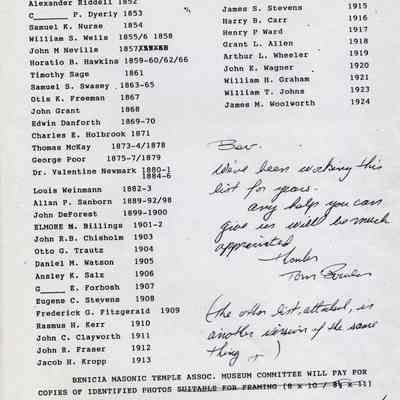 Alexander Riddell 1852
C______ P. Dyerly 1853
Samuel K. Nurse 1854
William S. Wells 1855/6 1858
John M Neville 1857
Horatio B. Hawkins 1859-60/62/66
Timothy Sage 1861
Samuel S. Swasey 1863-65
Otis K. Freeman 1867
John Grant 1868
Edwin Danforth 1869-70
Charles E. Holbrook 1871
Thomas McKay 1873-4/1878
George Poor 1875-7/1879
Dr. Valentine Newmark 1880-1
1884-6
Louis Weinmann 1882-3
Allan P. Sanborn 1889-92/98
John DeForest 1899-1900
ELMORE M. Billings 1901-2
John R.B. Chisholm 1903
Otto G. Trautz 1904
Daniel M. Watson 1905
Ansley K. Salz 1906
G_____ E. Forbosh 1907
Eugene C. Stevens 1908
Frederic G. Fitzgerald 1909
Rasmus H. Kerr 1910
John C. Clayworth 1911
John R. Fraser 1912
Jacob H. Kropp 1913
James S. Stevens 1915
Harry B. Carr 1916
Henry P Ward 1917
Grant L. Allen 1918
Arthur L. Wheeler 1919
John E. Wagner 1920
William H. Graham 1921
William T. Johns 1923
James M. Woolworth 1924
Bev.
We've been working this
list for years.
any help you can
give us will be much
appreciated
Thanks
Tom
(the other list, attached, is
another version of the same
thing.)
BENICIA MASONIC TEMPLE ASSOC. MUSEUM COMMITTEE WILL PAY FOR
COPIES OF IDENTIFIED PHOTOS SUITABLE FOR FRAMING (8 x 10 / 8½ x 11)